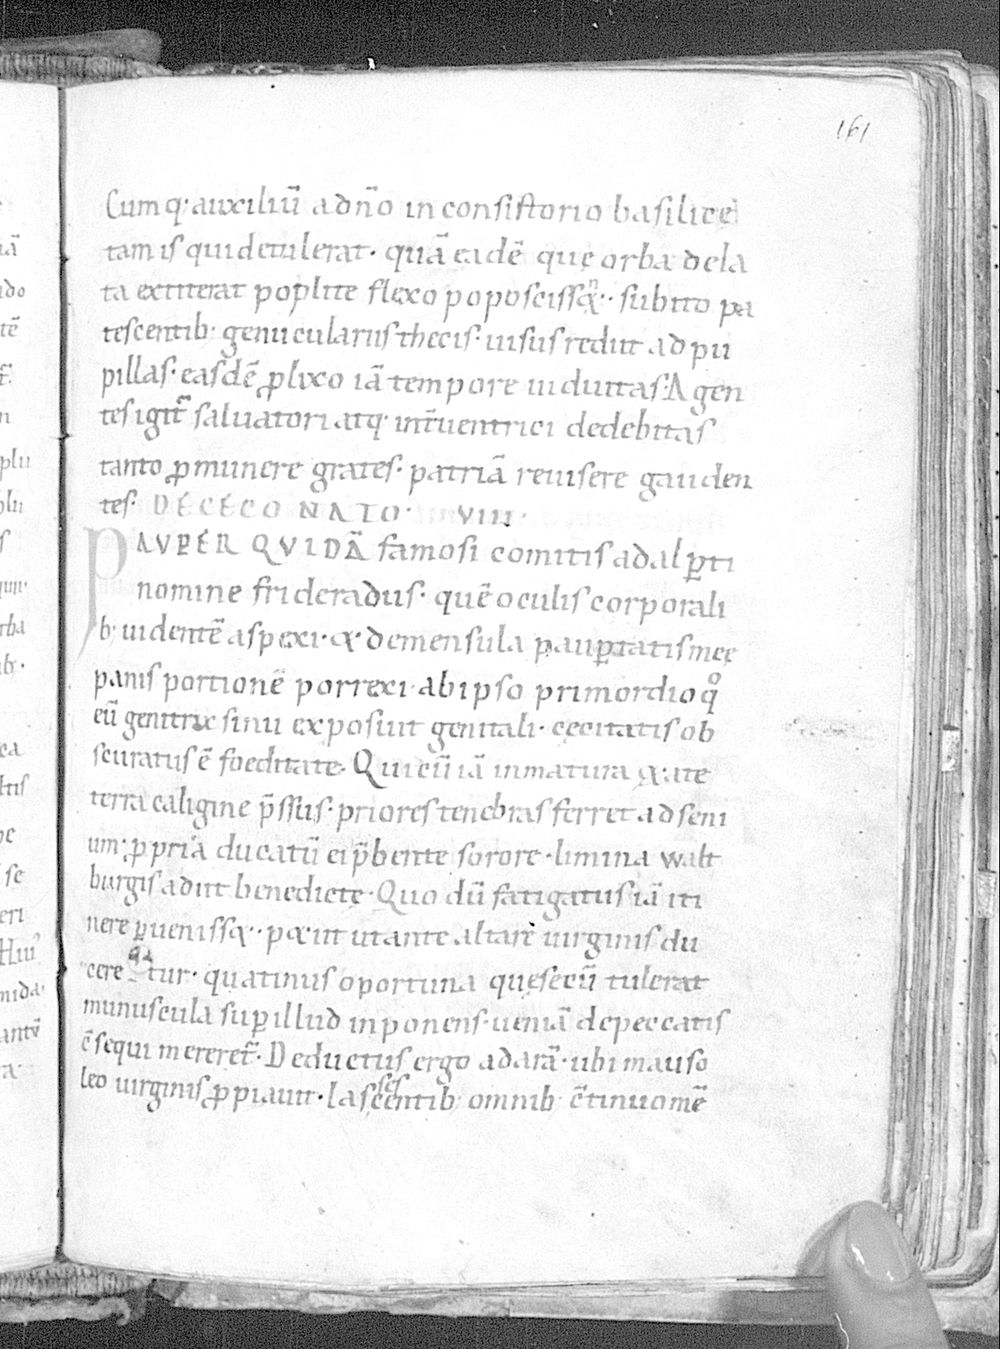 161
Cumq· auxiliū a dn̄o in consistorio basilicę
tam is qui detulerat· quā eadē quę orba dela
ta extiterat poplite flexo poposciss&· subito pa
tescentib· genicularius thecis· uisus rediit ad pu
pillas· easdē plixo iā tempore uiduitas· Agen
tes igit̄ saluatori atq· int̄uentrici dedebitas
tanto p munere grates· patriā reuisere gauden
tes· DE CECO NATO· VIII·
PAVPER QVIDĀ famosi comitis adalpti
nomine frideradus· quē oculis corporali
b· uidentē aspexi· & de mensula paupertatis meę
panis portionē porrexi· ab ipso primordio qo
eū genitrix sinu exposuit genitali· cęcitatis ob
scuratus ē foeditate· Qui cū iā inmatura &ate
tetra caligine p̄ssus· priores tenebras ferret ad seni
um· ppria ducatū ei p̄bente sorore· limina walt
burgis adiit benedictę· Quo dū fatigatus iā iti
nere pueniss&· p&iit ut ante altare uirginis du
ceretur· quatinus oportuna quę secū tulerat
munuscula sup illud inponens· ueniā de peccatis
c̄sequi mereret̄· Deductus ergo ad arā· ubi mauso
leo uirginis ppiauit· lascescentib· omnib· c̄tinuo mē